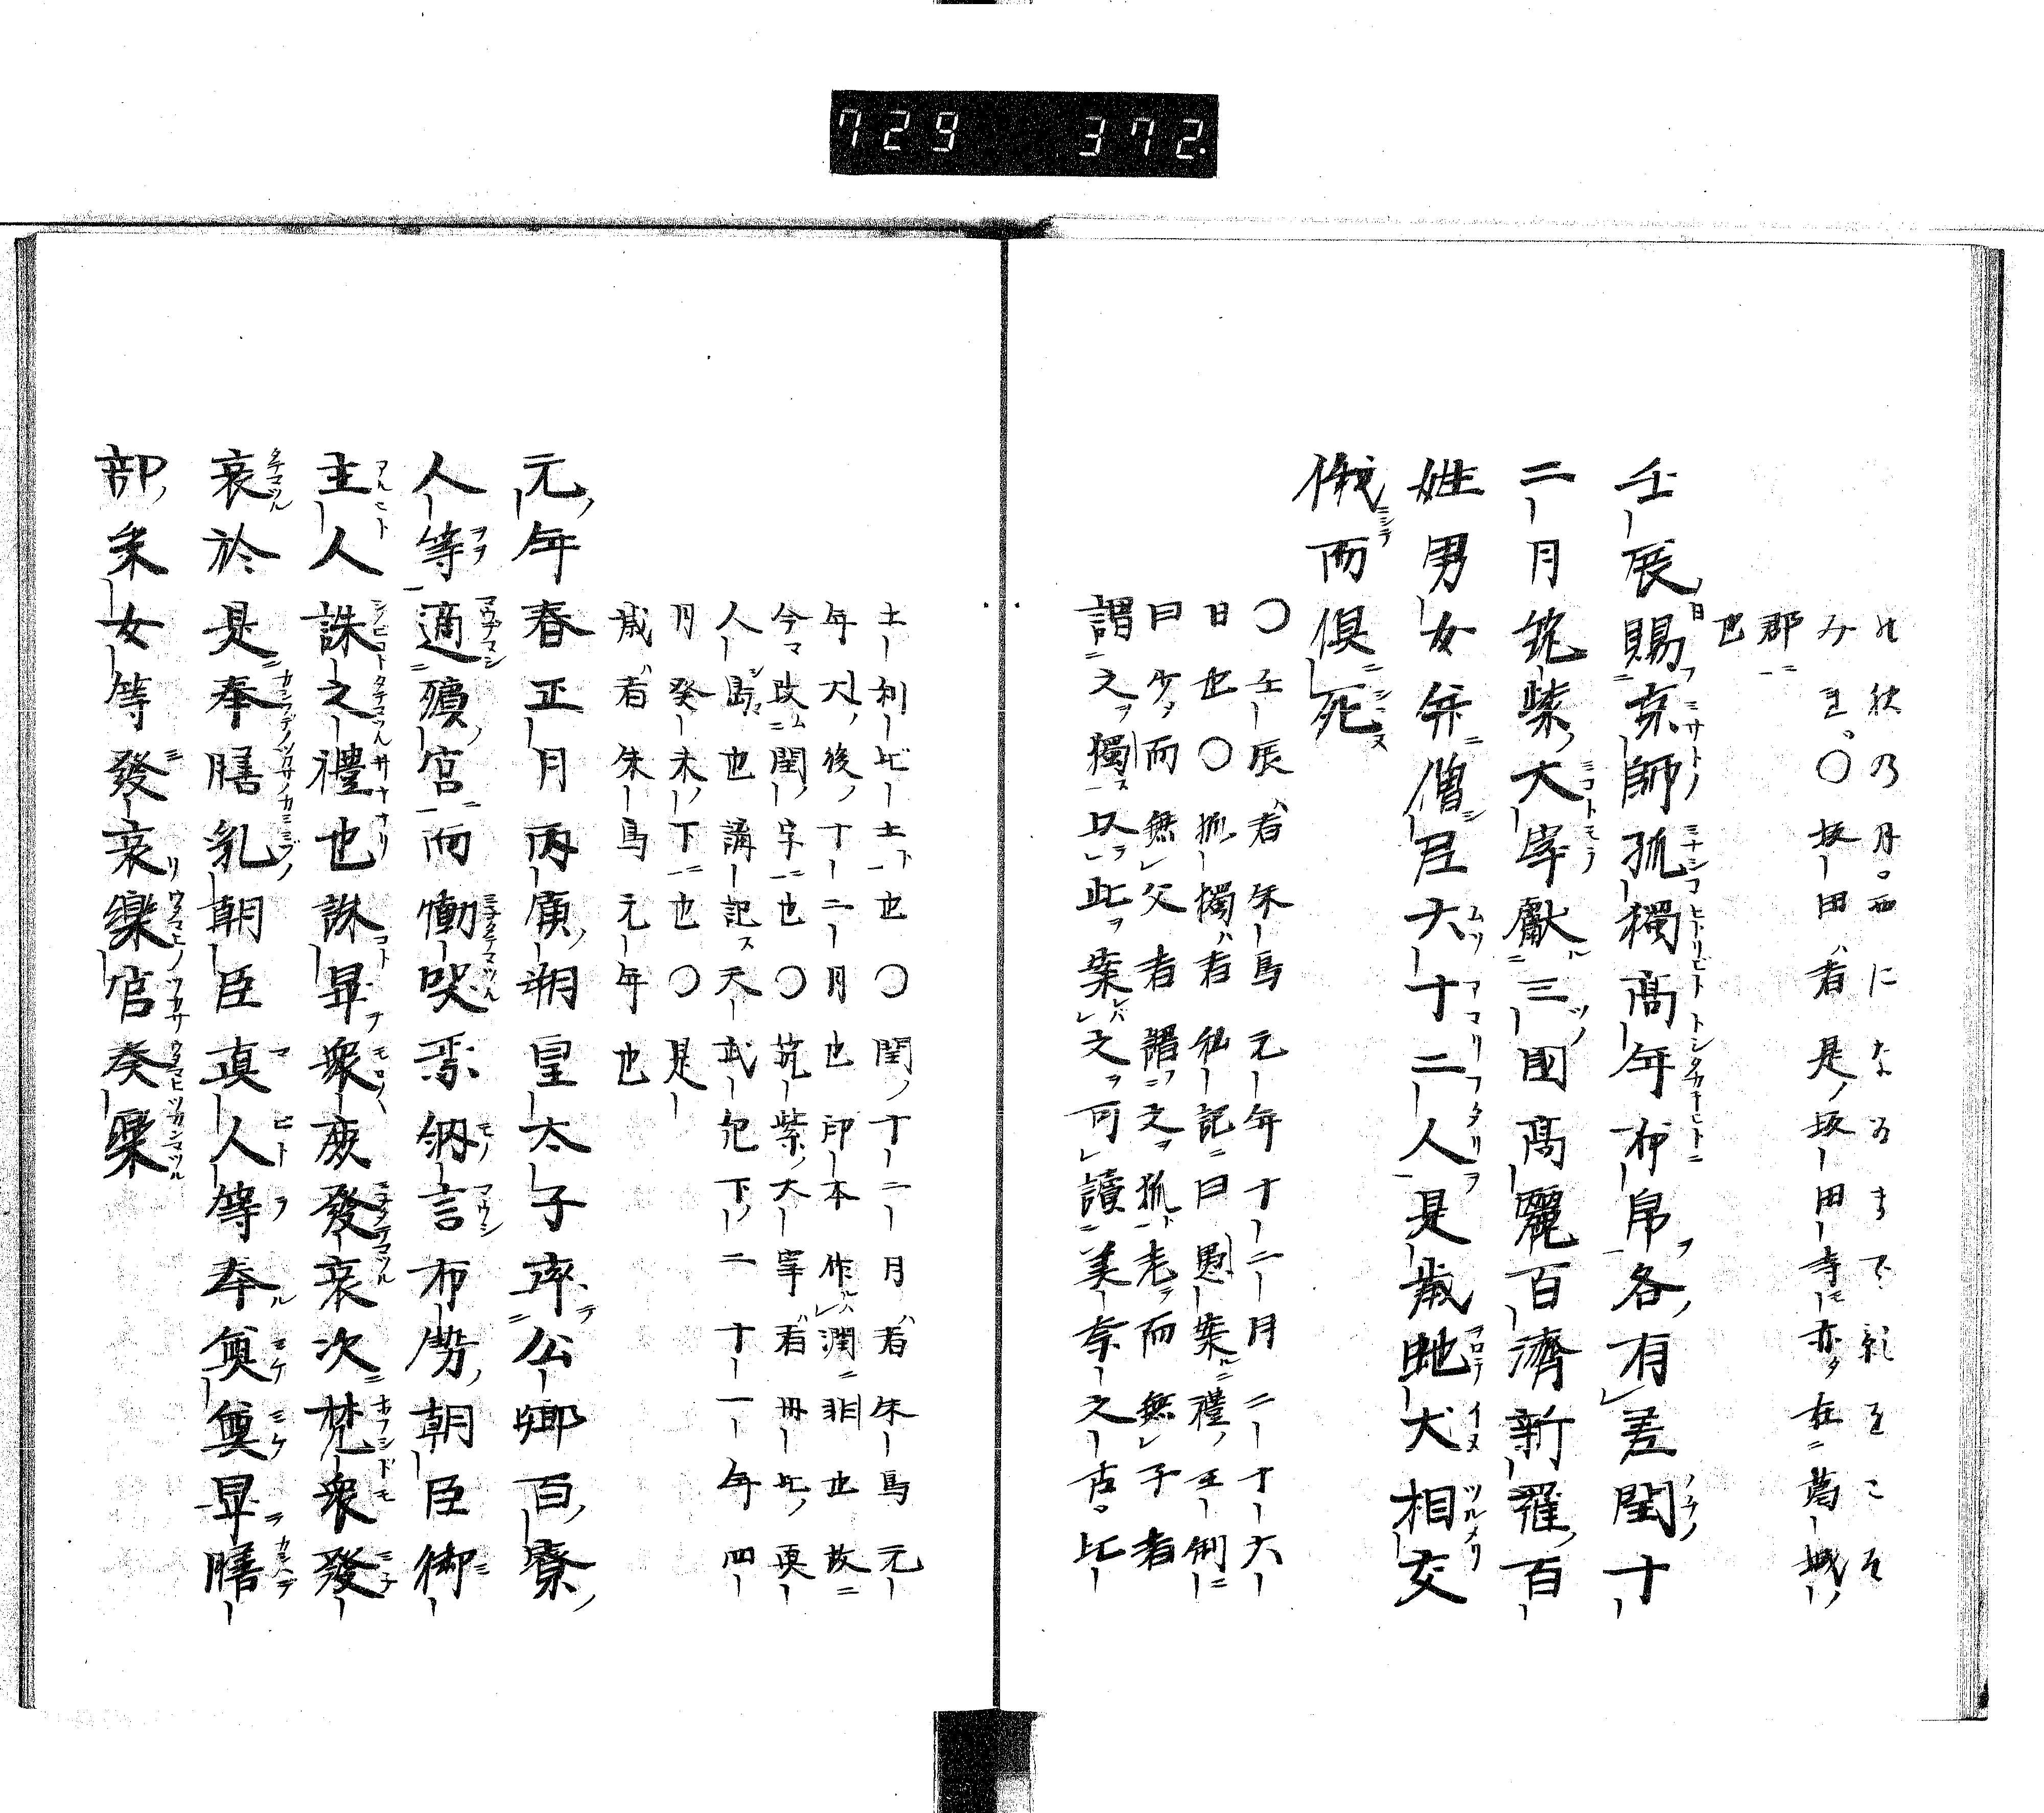 729 372
れ秋乃月。西になるまで影をこそ
みれ。〇坂田者是坂田寺亦在葛城
郡
也
壬辰賜京師孤獨高年布帛各有差閏十
二月筑紫大宰獻三國高麗百濟新羅百
姓男女并僧尼六十二人是歳虵犬相交
俄而俱死
〇壬辰者朱鳥元年十二月二十六
日也〇孤獨者私記曰愚案禮王制
曰少而無父者謂之孤老而無子者
謂之獨以此案之可讀美奈之古比
土利比土也〇閏十二月者朱鳥元
年大後十二月也印本作潤非也故
今改閏字也〇筑紫大宰者丹比真
人嶋也講記天武紀下二十一年四
月癸未下也〇是
歳者朱鳥元年也
元年春正月丙寅朔皇太子率公卿百寮
人等適殯宮而慟哭焉納言布勢朝臣御
主人誄之禮也誄畢衆庶發哀次梵衆發
哀於是奉膳紀朝臣真人等奉奠奠畢膳
部采女等發哀樂官奏樂